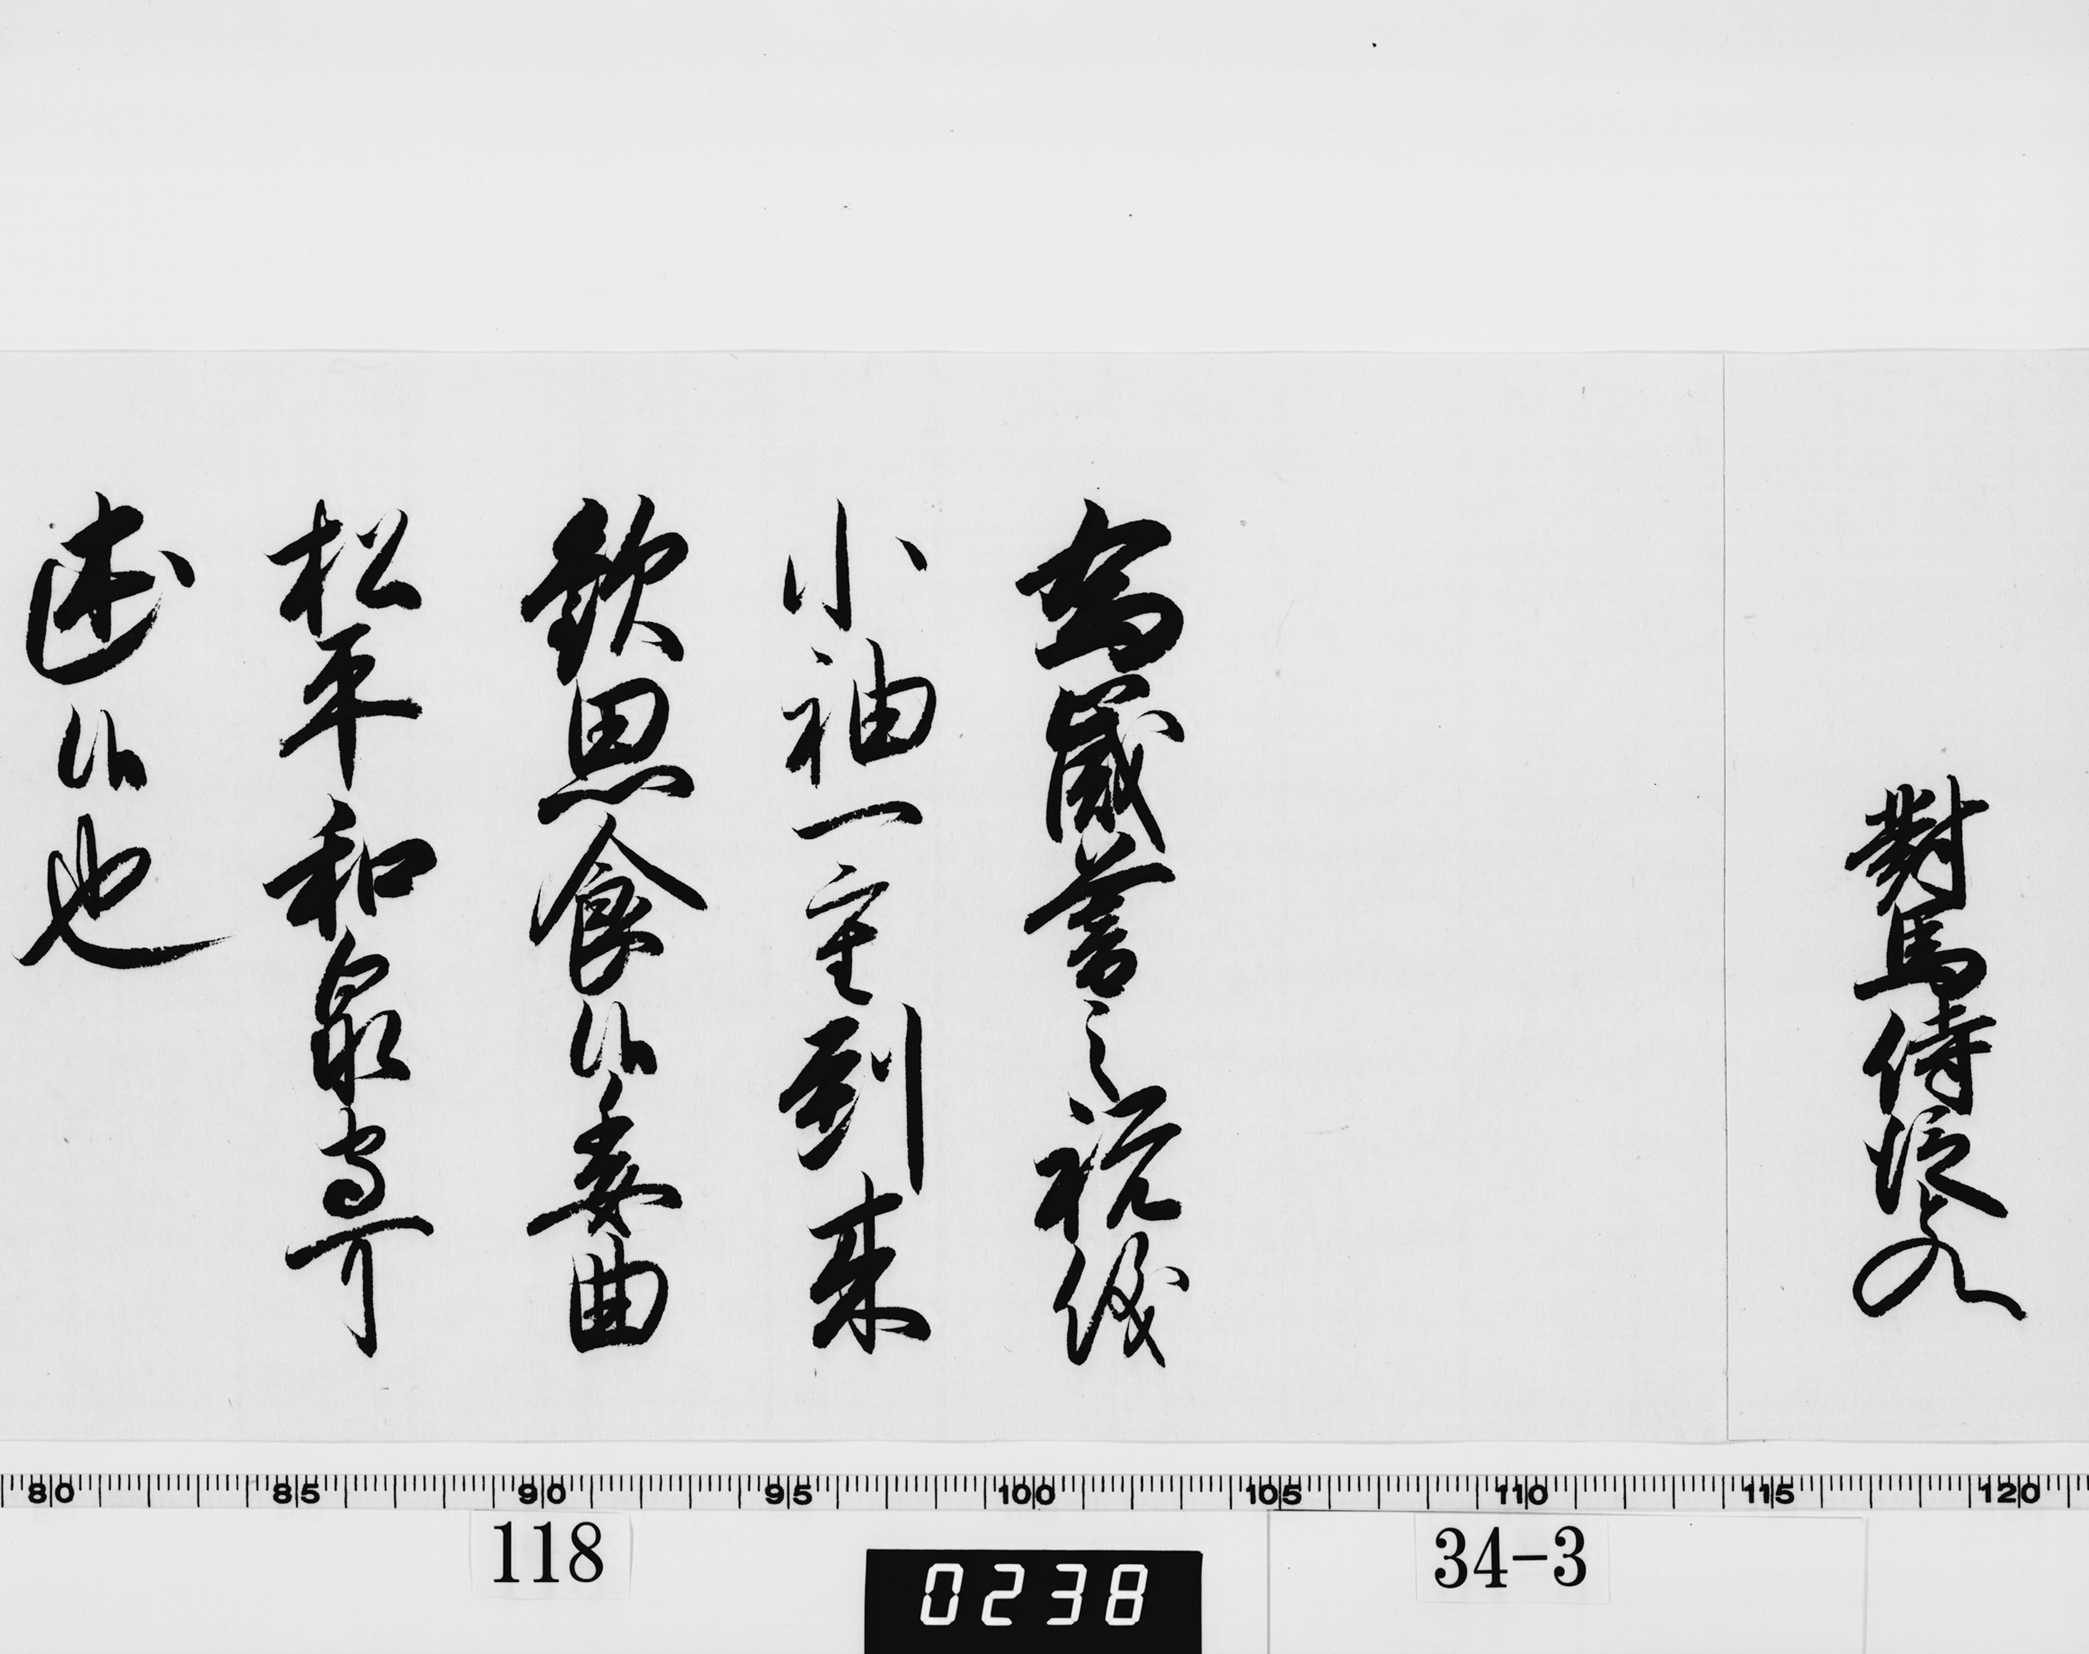 對馬侍従殿
為歳暮之祝儀
小袖一重到来
歓思食候委曲
松平和泉守可
述候也
80 85 90 95 100 105 110 115 120
118
0238
34-3